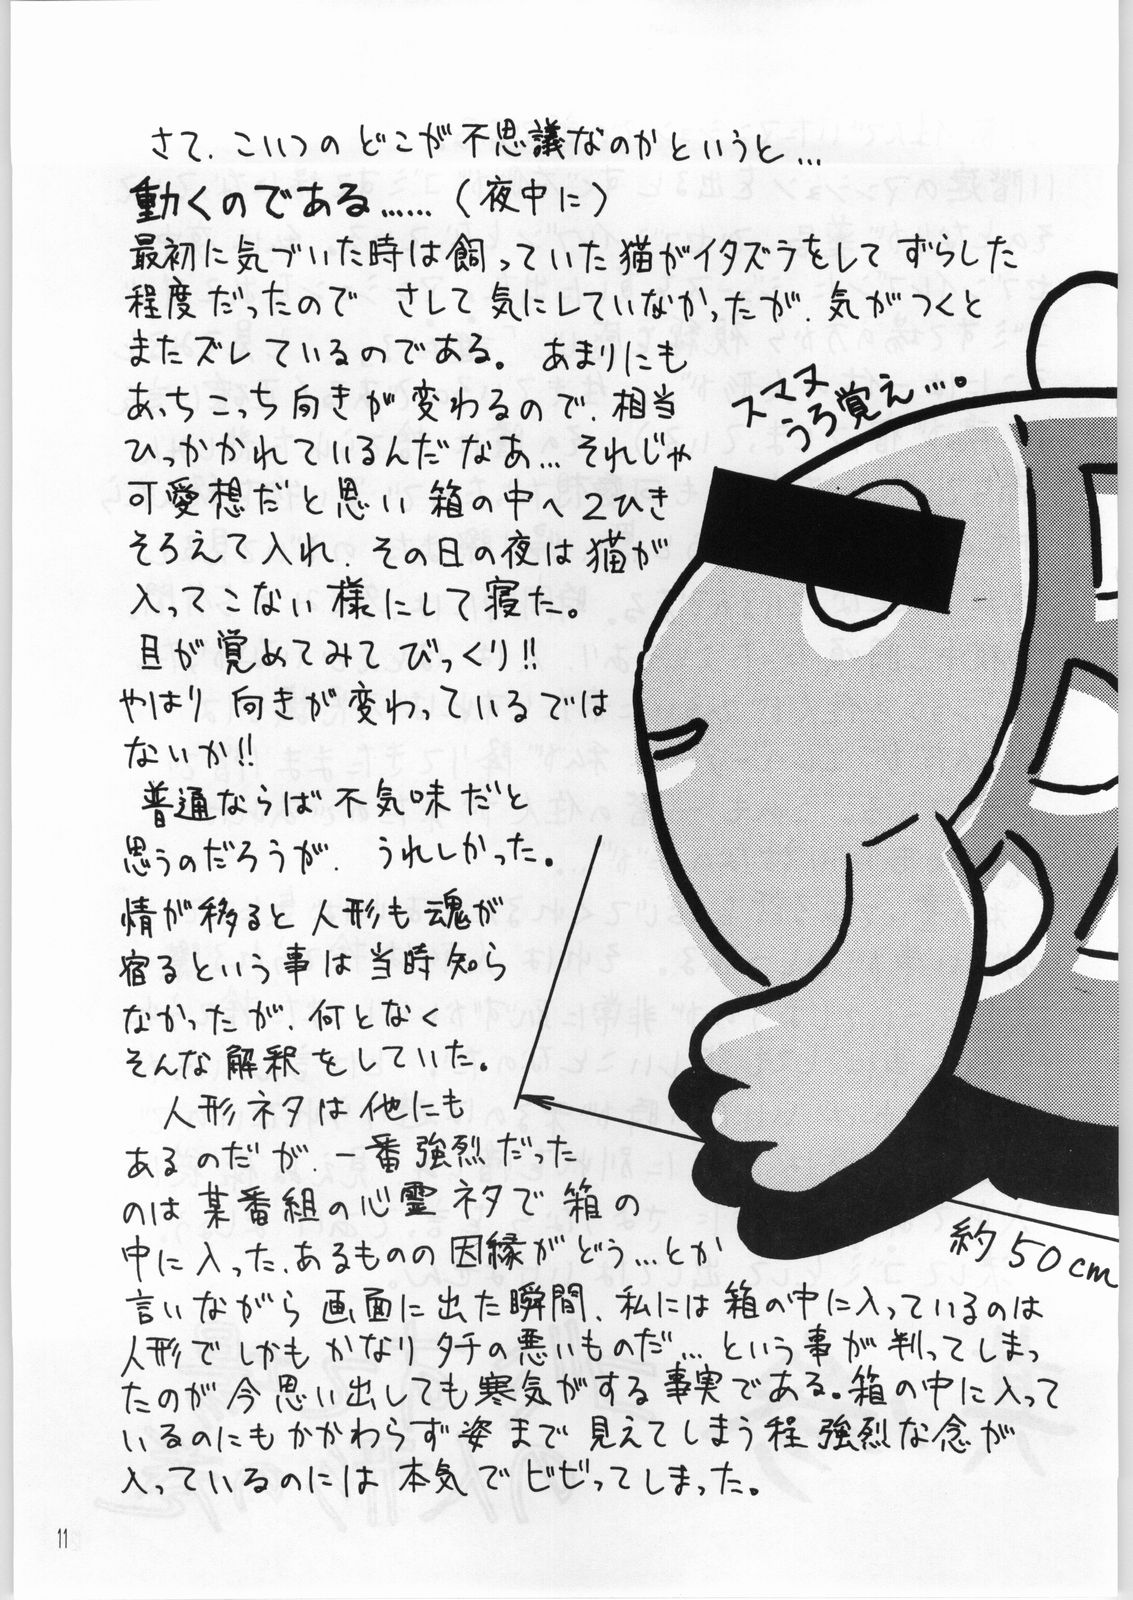 さて、こいつのどこが不思議なのかというと…
動くのである……（夜中に）
最初に気づいた時は飼っていた猫がイタズラをしてずらした
程度だったので さして気にしていなかったが、気がつくと
またズレているのである。あまりにも
あっちこっち向きが変わるので、相当
ひっかかれているんだなあ…それじゃ
可愛想だと思い 箱の中へ2ひき
そろえて入れ、その日の夜は猫が
入ってこない様にして寝た。
目が覚めてみてびっくり!!
やはり向きが変わっているでは
ないか!!
普通ならば不気味だと
思うのだろうが、うれしかった。
情が移ると人形も魂が
宿るという事は当時知ら
なかったが、何となく
そんな解釈をしていた。
人形ネタは他にも
あるのだが、一番強烈だった
のは某番組の心霊ネタで箱の
中に入った、あるものの因縁がどう…とか
言いながら画面に出た瞬間、私には箱の中に入っているのは
人形でしかもかなりタチの悪いものだ…という事が判ってしまっ
たのが今思い出しても寒気がする事実である。箱の中に入って
いるのにもかかわらず姿まで見えてしまう程強烈な念が
入っているのには本気でビビってしまった。
スマヌ
うろ覚え…。
約50cm
11